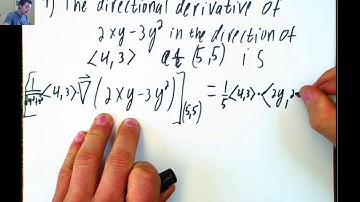 1) The directional derivative of
2xy-3y² in the direction of
<4,3> at (5,5) is
<4,3> ∇⃗ (2xy-3y²)](5,5) = 1/5 <4,3> · <2y, 2